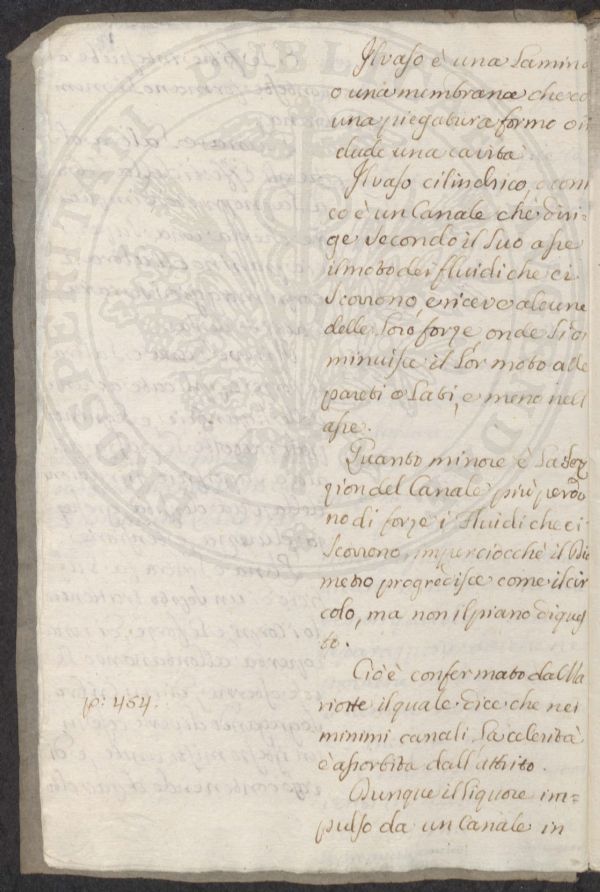 Il vaso è una Lamina
o una membrana che co
una piegatura forma o in
clude una cavità
Il vaso cilindrico, o coni
co è un Canale che diri=
ge secondo il suo asse
il moto dei fluidi che ci
scorrono, e riceve alcune
delle loro forze, onde si di
minuisce il lor moto alle
pareti o Lati, e meno nell
asse.
Quanto minore è la Sez
zion del Canale più perdo
no di forze i Fluidi che ci
scorrono, imperciocchè il Dia
metro progredisce come il cir
colo, ma non il piano di ques
to.
Ciò è confermato dal Ma
riotte il quale dice che nei
p: 454.
minimi canali la celerità
è assorbita dall'attrito.
Dunque il liquore im=
pulso da un Canale in
PUBLIC
PROSPERITATI